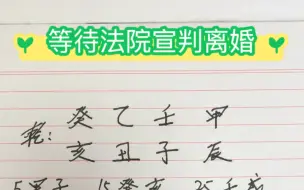 等待法院宣判离婚
癸 乙 壬 甲
乾:
亥 丑 子 辰
5甲子 15癸亥 25壬戌